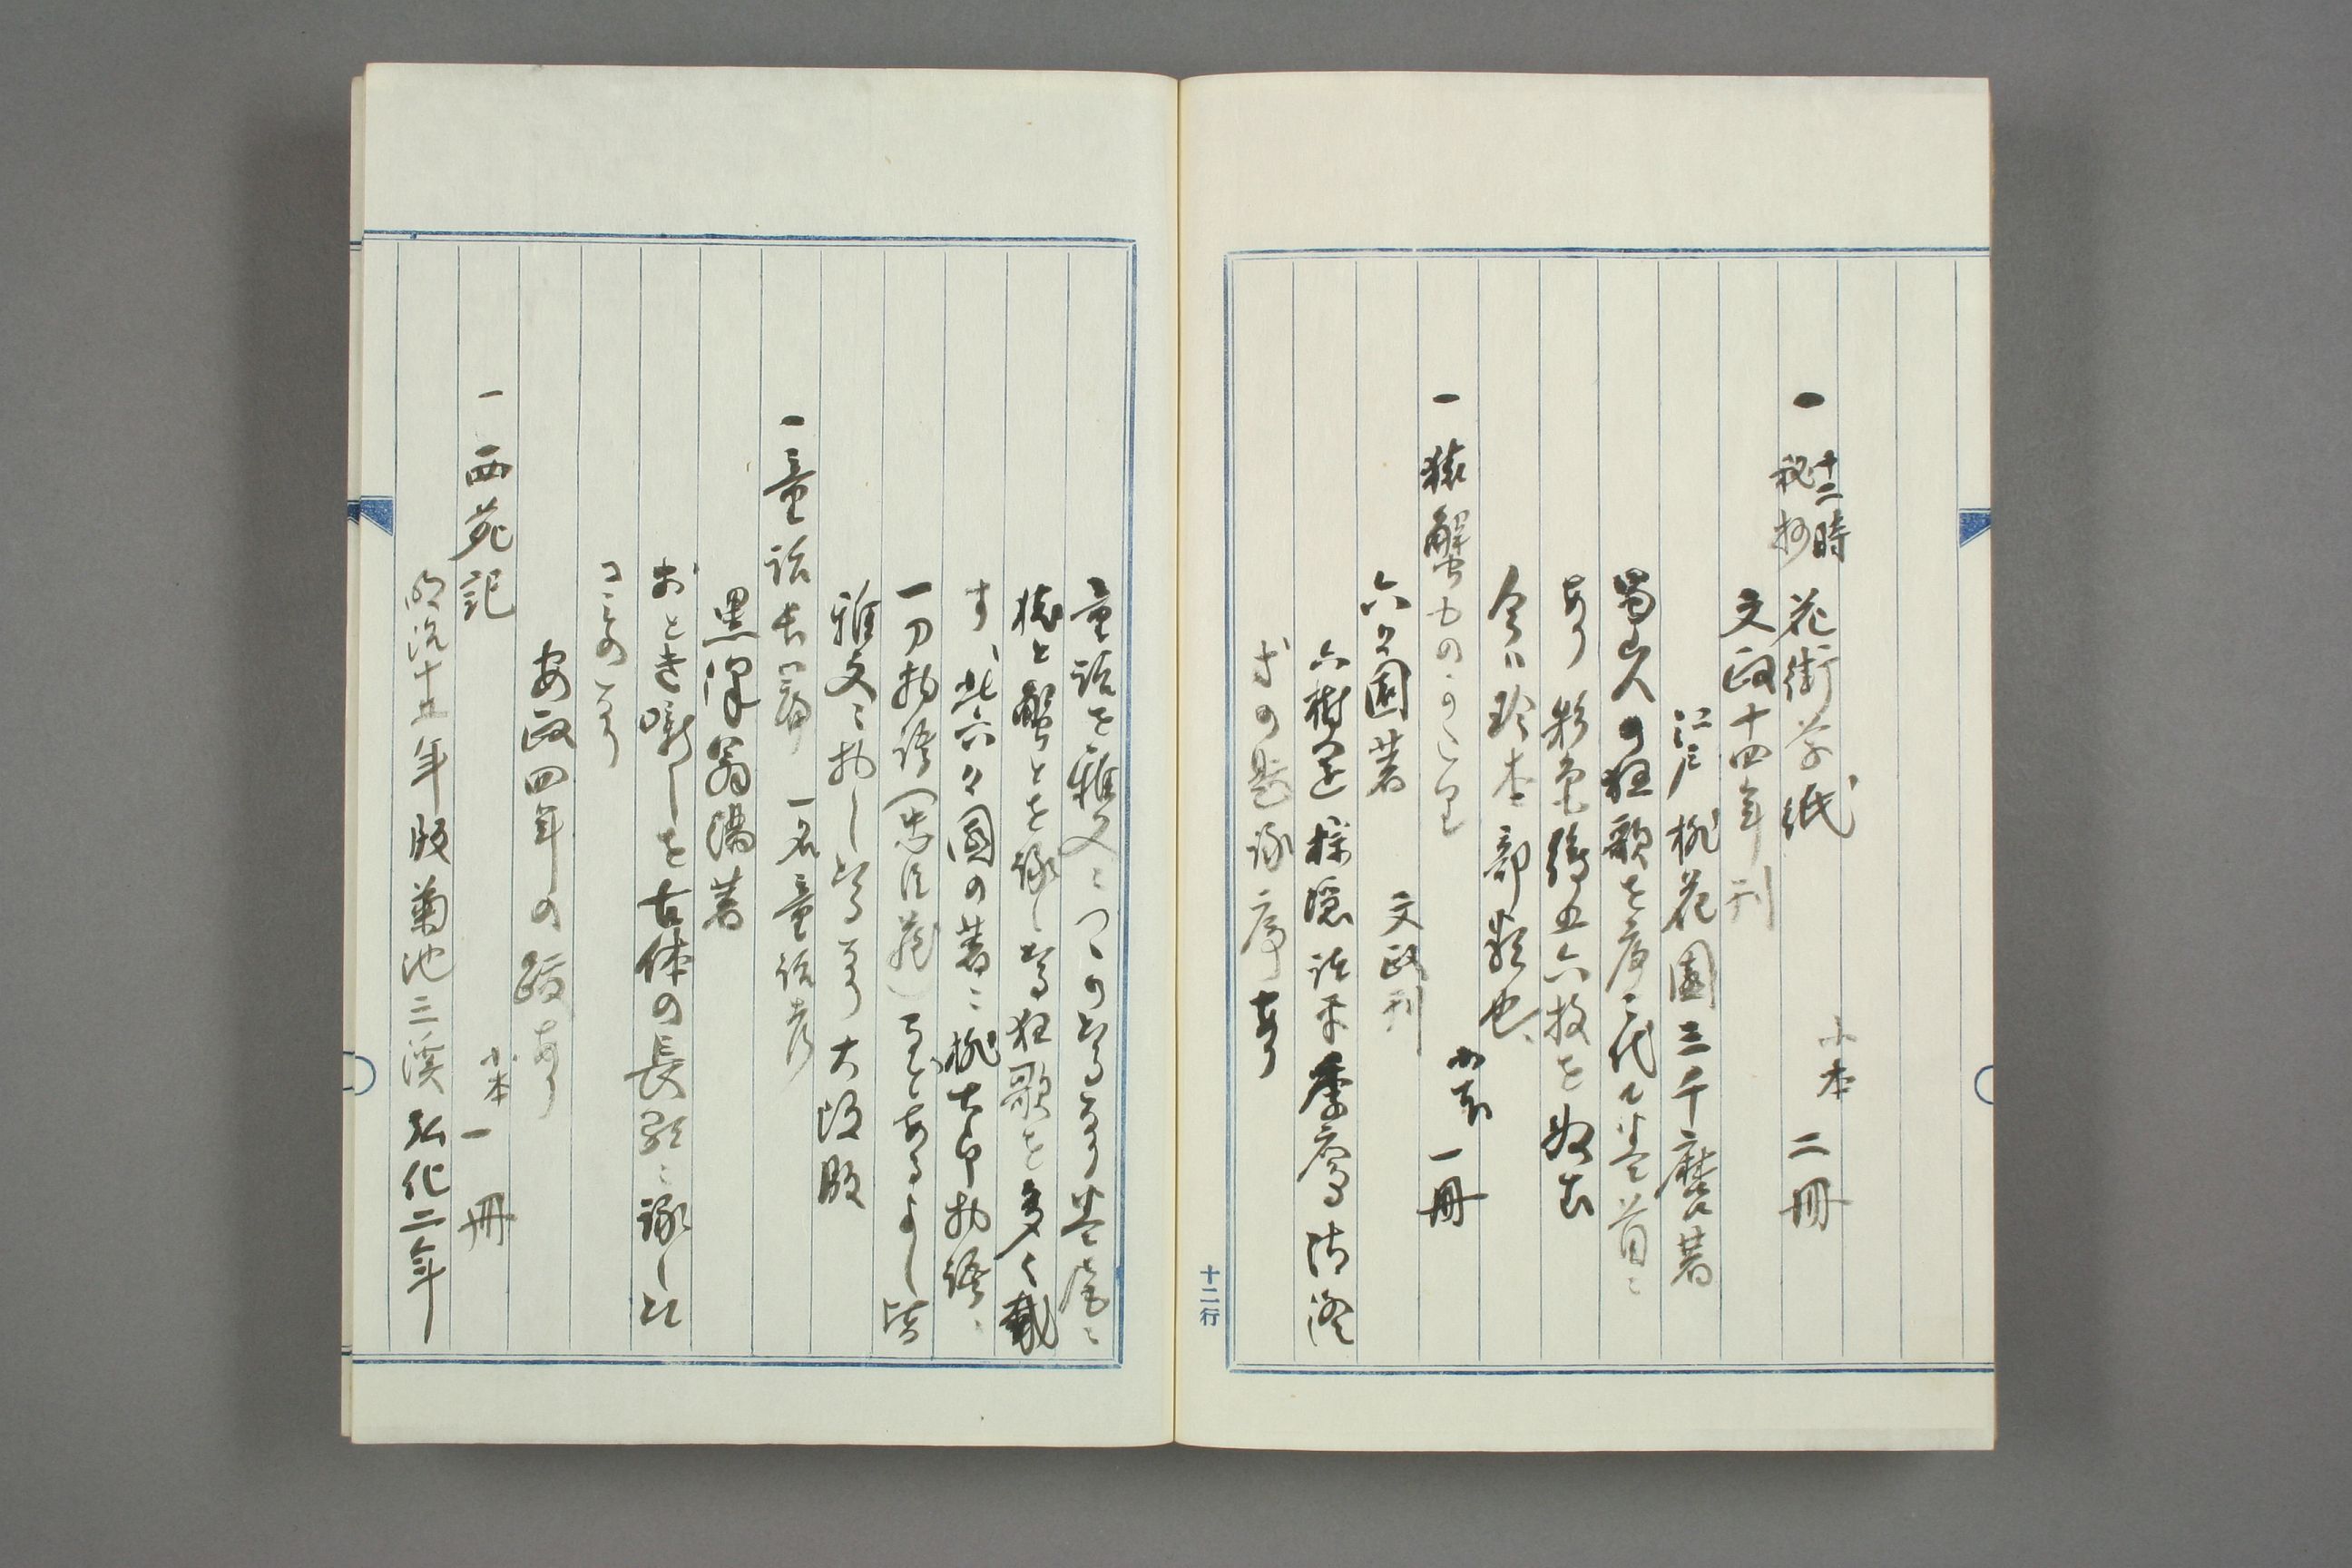 一 十二時秘抄 花街草紙 小本 二冊
文政十四年刊
江戸 桃花園三千麿著
蜀山人の狂歌を序ニ代ヘ巻首ニ
あり 彩色絵五六枚を
今ハ珍本部類也、
一 猿蟹ものかたり 小本 一冊
六々園著 文政刊
六樹園 探隠 清澄
等の題詠序あり
童話を雅文につゝりたるなり 巻尾ニ
猿と蟹とを詠したる狂歌を多く載
す、此六々園の著ニ桃太郎物語、
一刀物語 なとあるよし皆
雅文ニ物したるなり 大阪版
一 童話長篇 一名童話考
黒澤翁満著
おとき噺しを古体の長歌ニ詠した
ものなり
安政四年の跋あり
一 西苑記 小本 一冊
明治十五年版 菊池三溪 弘化二年
十二行